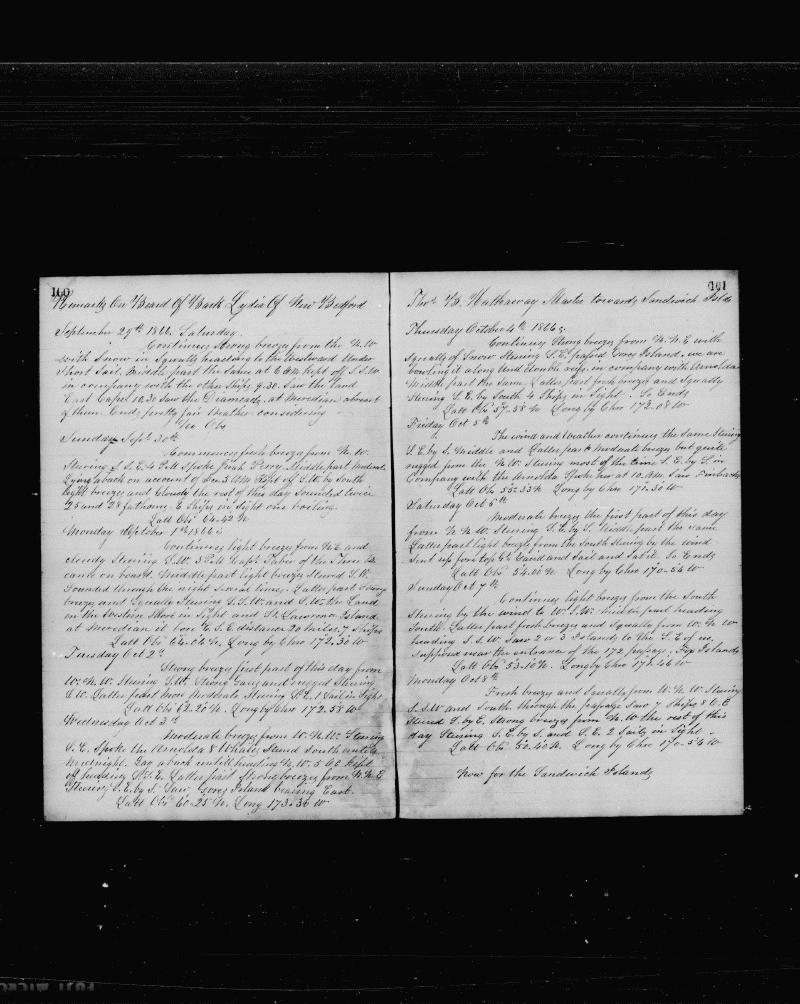 160
Remarks On Board Of Bark Lydia Of New Bedford
September 29th 1866 Saturday.
Continues Strong breezes from the N.W
with Snow in Squalls heading to the Westward Under
Short Sail. Middle part the Same at 6 AM kept off S.S.W.
in company with the other Ships 9.30. Saw the land
East Cape 10.30 Saw the Diameeds, at Meredian abreast
of them. Ends pretty fair Weather considering
No Obs
Sunday Sept 30th
Commences fresh breezes from N.W.
Stering S.S.E. 4 P.M Spoke Perry. Middle part Moderate
Laying aback on account of 5 AM kept off S.W. by South
light breezes and cloudy the rest of this day sounded twice
25 and 28 fathoms. 6 Ships in Sight one boiling.
Latt Obs 64-42 N
Monday October 1st 1866
Continues light breezes from N.E and
cloudy Stering S.W. 3 P.M. Capt Taber of the
came on board. Middle part light breezes Sterd S.W.
Sounded through the night Several times. Latter part Strong
breezes and Squally Stering S.S.W. and S.W. the Land
on the Western Shore in Sight and St. Lawrence Island
at Meredian it bore E.S.E distance 20 Miles. 7 Ships
Latt Obs 64-04 N. Long by Chro 172-30 W
Tuesday Oct 2d
Strong breezes first part of this day from
W.N.W. Stering S.W. Strong Gale and rugged Stering
S.W. Latter part More Moderate Stering S.E. 1 Sail in Sight
Latt Obs 62-20 N. Long by Chro 172-58 W
Wednesday Oct 3d
Moderate breezes from W.N.W. Stering
S.E. Spoke the Arnolda 8 Whales, Sterd South until
Midnight. Lay aback untill heading N.W. 5 AM kept
off heading S.S.E. Latter part Strong breezes from N.N.E
Stering S.E. by S. Saw Gores Island bearing East.
Latt Obs 60-25 N. Long 173-36 W
161
Thos B. Hathaway Master towards Sandwich Islds
Thursday October 4th 1866
Continues Strong breezes from N.N.E with
Squalls of Snow Stering S.E. passed Gores Island. we are
bowling it along Und double reefs. in company with Arnolda
Middle part the Same. Latter part fresh breezes and Squally
Stering S.E. by South 4 Ships in Sight. So Ends
Latt Obs 57-58 N Long by Chro 173-08 W
Friday Oct 5th
The wind and Weather continues the Same Stering
S.E. by S. Middle and Latter part Moderate breezes but quite
rugged from the N.W. Stering most of the time S.E. by S. in
Company with the Arnolda Spoke her at 10 AM. Saw Finbacks
Latt Obs 55-33 N Long by Chro 171-30 W
Saturday Oct 6th
Moderate breezes the first part of this day
from N.N.W. Stering S.E. by S. Middle part the Same
Latter part light breezes from the South Stering by the wind
Sent up fore top Gt Yard and Sail and Set it. So Ends
Latt Obs 54-10 N Long by Chro 170-54 W
Sunday Oct 7th
Continues light breezes from the South
Stering by the wind to W.S.W. Middle part heading
South. Latter part fresh breezes and Squally from W.N.W
heading S.S.W. Saw 2 or 3 Islands to the S.E of us
supposed near the entrance of the 172 passage. Fox Islands
Latt Obs 53-10 N. Long by Chro 171-46 W
Monday Oct 8th
Fresh breezes and Squally from W.N.W. Stering
S.S.W and South through the passage Saw 7 Ships 5 P.M
Sterd S. by E. Strong breezes from N.W the rest of this
day Stering S.E. by S. and S.E. 2 Sails in Sight.
Latt Obs 50-40 N. Long by Chro 170-54 W
Now for the Sandwich Islands